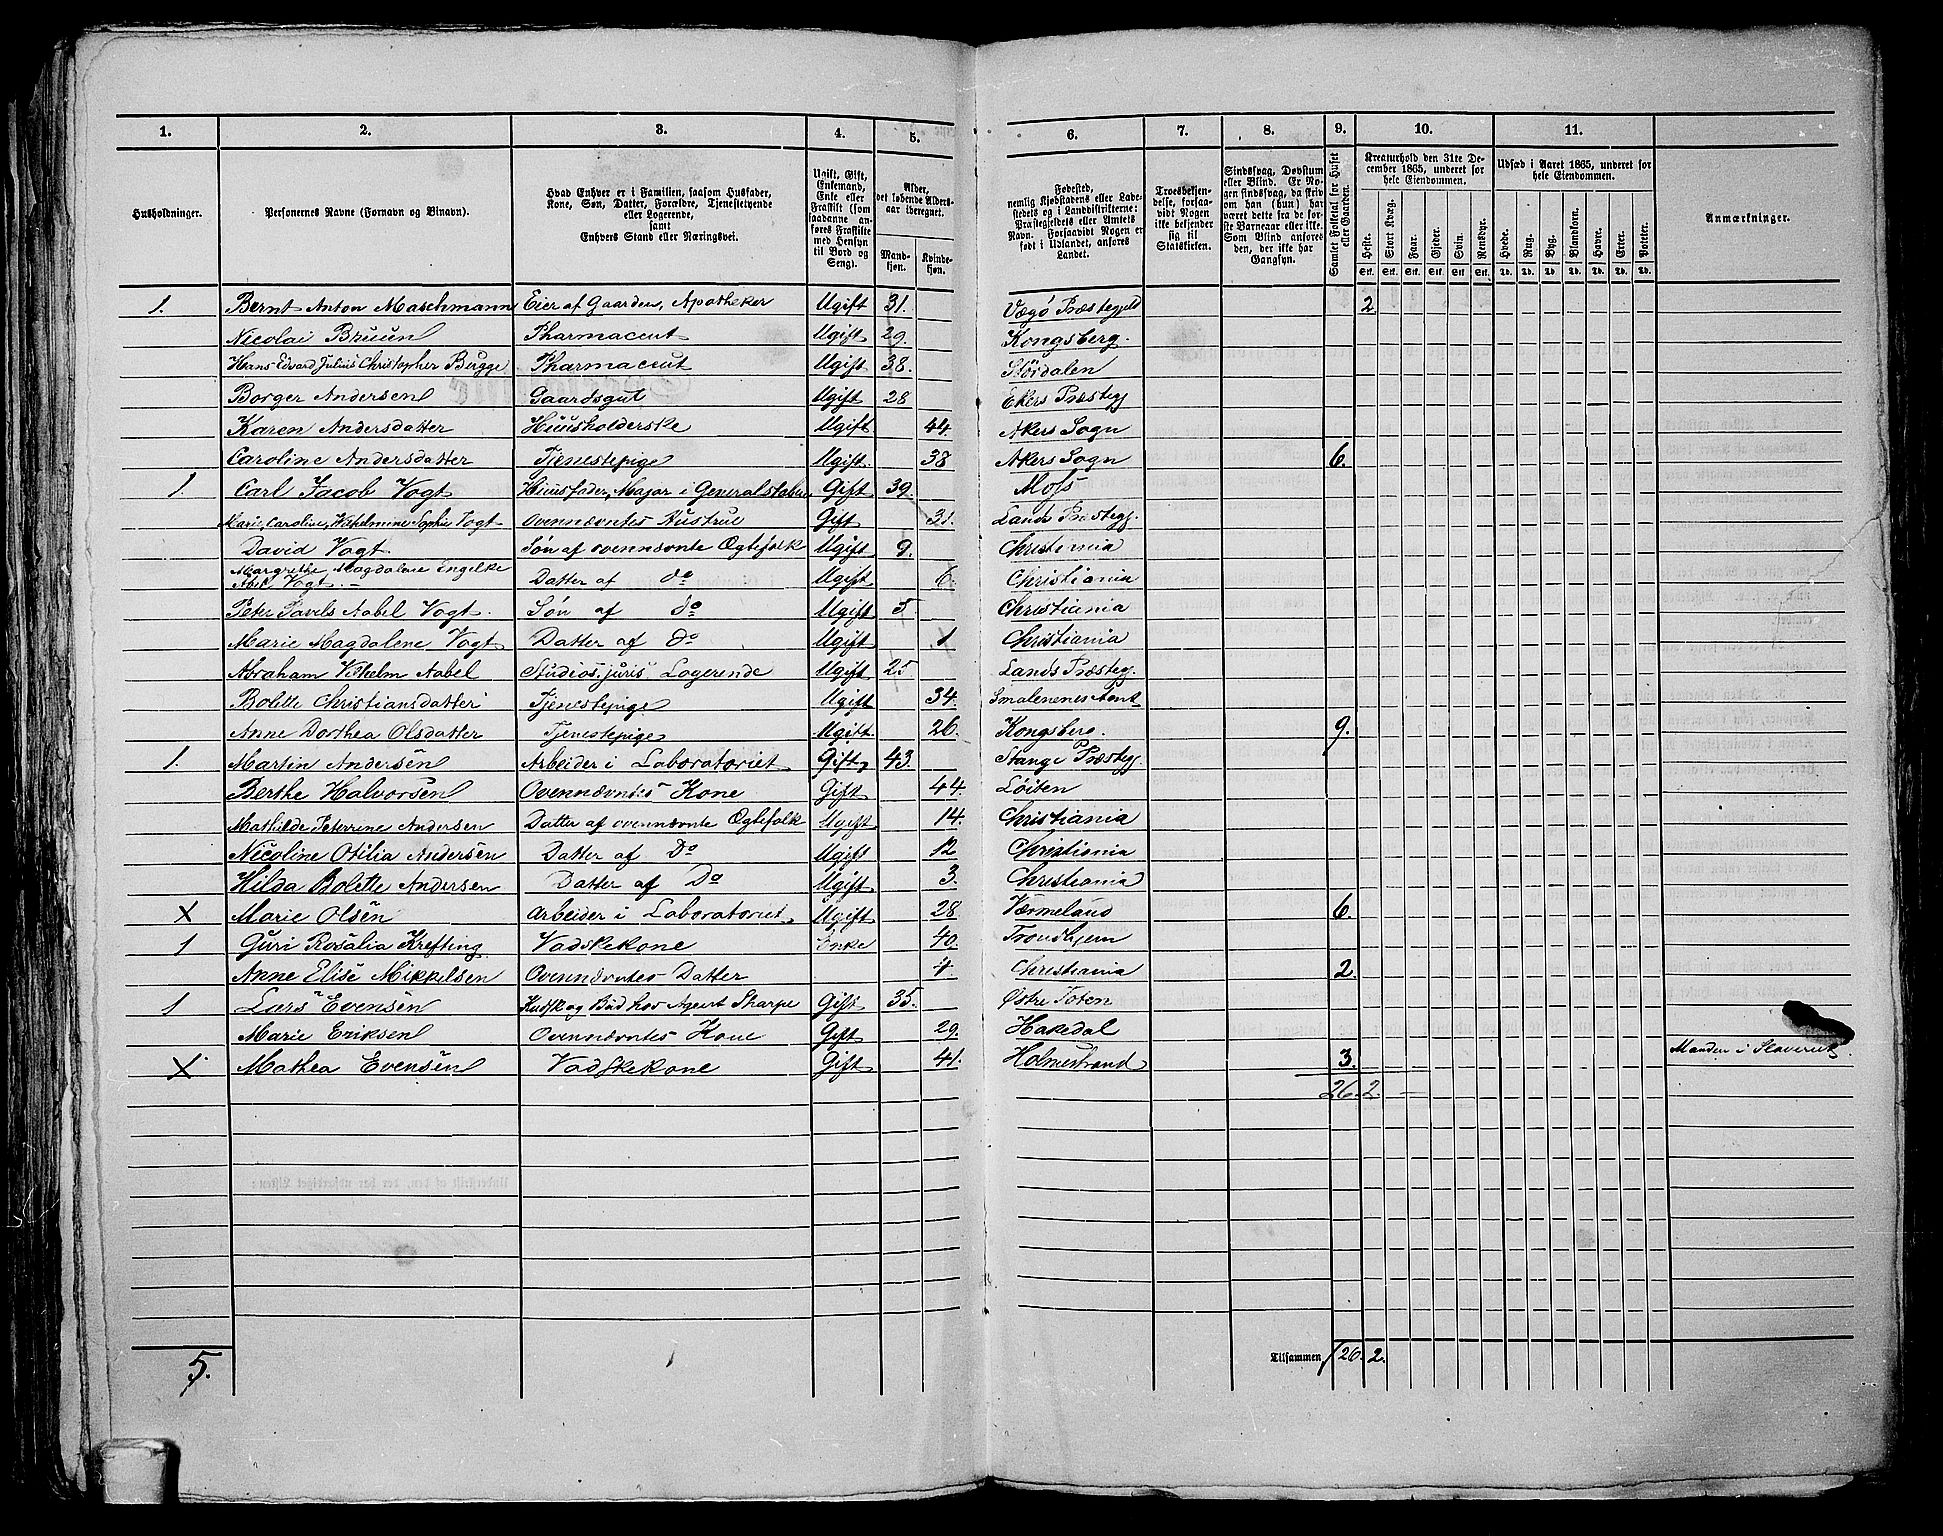 1. 2. 3. 4. 5. 6. 7. 8. 9. 10. 11.
Husholdninger.
Personernes Navne (Fornavn og Binavn).
Hvad Enhver er i Familien, saasom Husfader, Kone, Søn, Datter, Forældre, Tjenestetyende eller Logerende, samt Enhvers Stand eller Næringsvei.
Ugift, Gift, Enkemand, Enke eller Fraskilt (som saadanne anføres Fraskilte med Hensyn til Bord og Seng).
Alder, det løbende Aldersaar iberegnet.
Mandkjøn. Kvindekjøn.
Fødested, nemlig Kjøbstadens eller Ladestedets og i Landdistrikterne: Præstegjeldets eller Amtets Navn. Forsaavidt Nogen er født i Udlandet, anføres Landet.
Troesbekjendelse, forsaavidt Nogen ikke bekjender sig til Statskirken.
Sindssvag, Døvstum eller Blind. Er Nogen sindssvag, da skrives om han (hun) har været dette fra de første Barneaar eller ikke. Som Blind anføres den, der ikke har Gangsyn.
Samlet Folketal for Huset eller Gaarden.
Kreaturhold den 31te December 1865, underet for hele Eiendommen.
Heste. Stort Kvæg. Faar. Gjeder. Svin. Rensdyr.
Stk. Stk. Stk. Stk. Stk. Stk.
Udsæd i Aaret 1865, underet for hele Eiendommen.
Hvede. Rug. Byg. Blandkorn. Havre. Erter. Poteter.
Td. Td. Td. Td. Td. Td. Td.
Anmærkninger.
1. Bernt Anton Maschmann Eier af Gaarden, Apotheker Ugift 31. Vægø Præstegjeld 2
Nicolai Bruun Pharmaceut Ugift 29. Kongsberg.
Hans Edvard Julius Christopher Bugge Pharmaceut Ugift 38. Stördalen
Borger Andersen Gaardsgut Ugift 28 Ekers Præstegj
Karen Andersdatter Huusholderske Ugift 44. Akers Sogn
Caroline Andersdatter Tjenestepige Ugift. 38 Akers Sogn 6.
1. Carl Jacob Vogt Huusfader, Major i Generalstaben Gift 39. Moss
Marie Caroline Wilhelmine Sophie Vogt Ovennævntes Hustrue Gift 31. Lands Præstegj.
David Vogt Søn af ovennævnte Ægtefolk Ugift 9. Christiania
Margrethe Magdalene Engelke
Abel Vogt. — Datter af do Ugift 6. Christiania
Peter Pavels Aabel Vogt. Søn af do Ugift 5. Christiania
Marie Magdalene Vogt Datter af do Ugift 1 Christiania
Abraham Vilhelm Aabel Studios. juris Logerende Ugift 25 Lands Præstegj.
Bolette Christiansdatter Tjenestepige Ugift 34. Smalenenes Amt
Anne Dorthea Olsdatter Tjenestepige Ugift 26. Kongsberg. 9.
1. Martin Andersen Arbeider i Laboratoriet Gift 43. Stange Præstegj
Berthe Halvorsen Ovennævntes Kone Gift 44. Löiten
Mathilde Peterrine Andersen Datter af ovennævnte Ægtefolk Ugift 14. Christiania
Nicoline Otilia Andersen Datter af Do Ugift 12 Christiania
Hilda Bolette Andersen Datter af Do Ugift 3. Christiania
X Marie Olsen Arbeider i Laboratoriet Ugift 28 Værmeland 6.
1 Guri Rosalia Krefting Vadskekone Enke 40. Trondhjem
Anne Elise Mikkelsen Ovennævntes Datter 4. Christiania 2.
1 Lars Evensen Kudsk og Bud hos Agent Sharpe Gift 35. Østre Toten
Marie Eriksen Ovennævntes Kone Gift 29. Hakedal
X Mathea Evensen Vadskekone Gift 41. Holmestrand 3. Manden i Slaveriet.
26. 2. —
5. Tilsammen 26. 2.